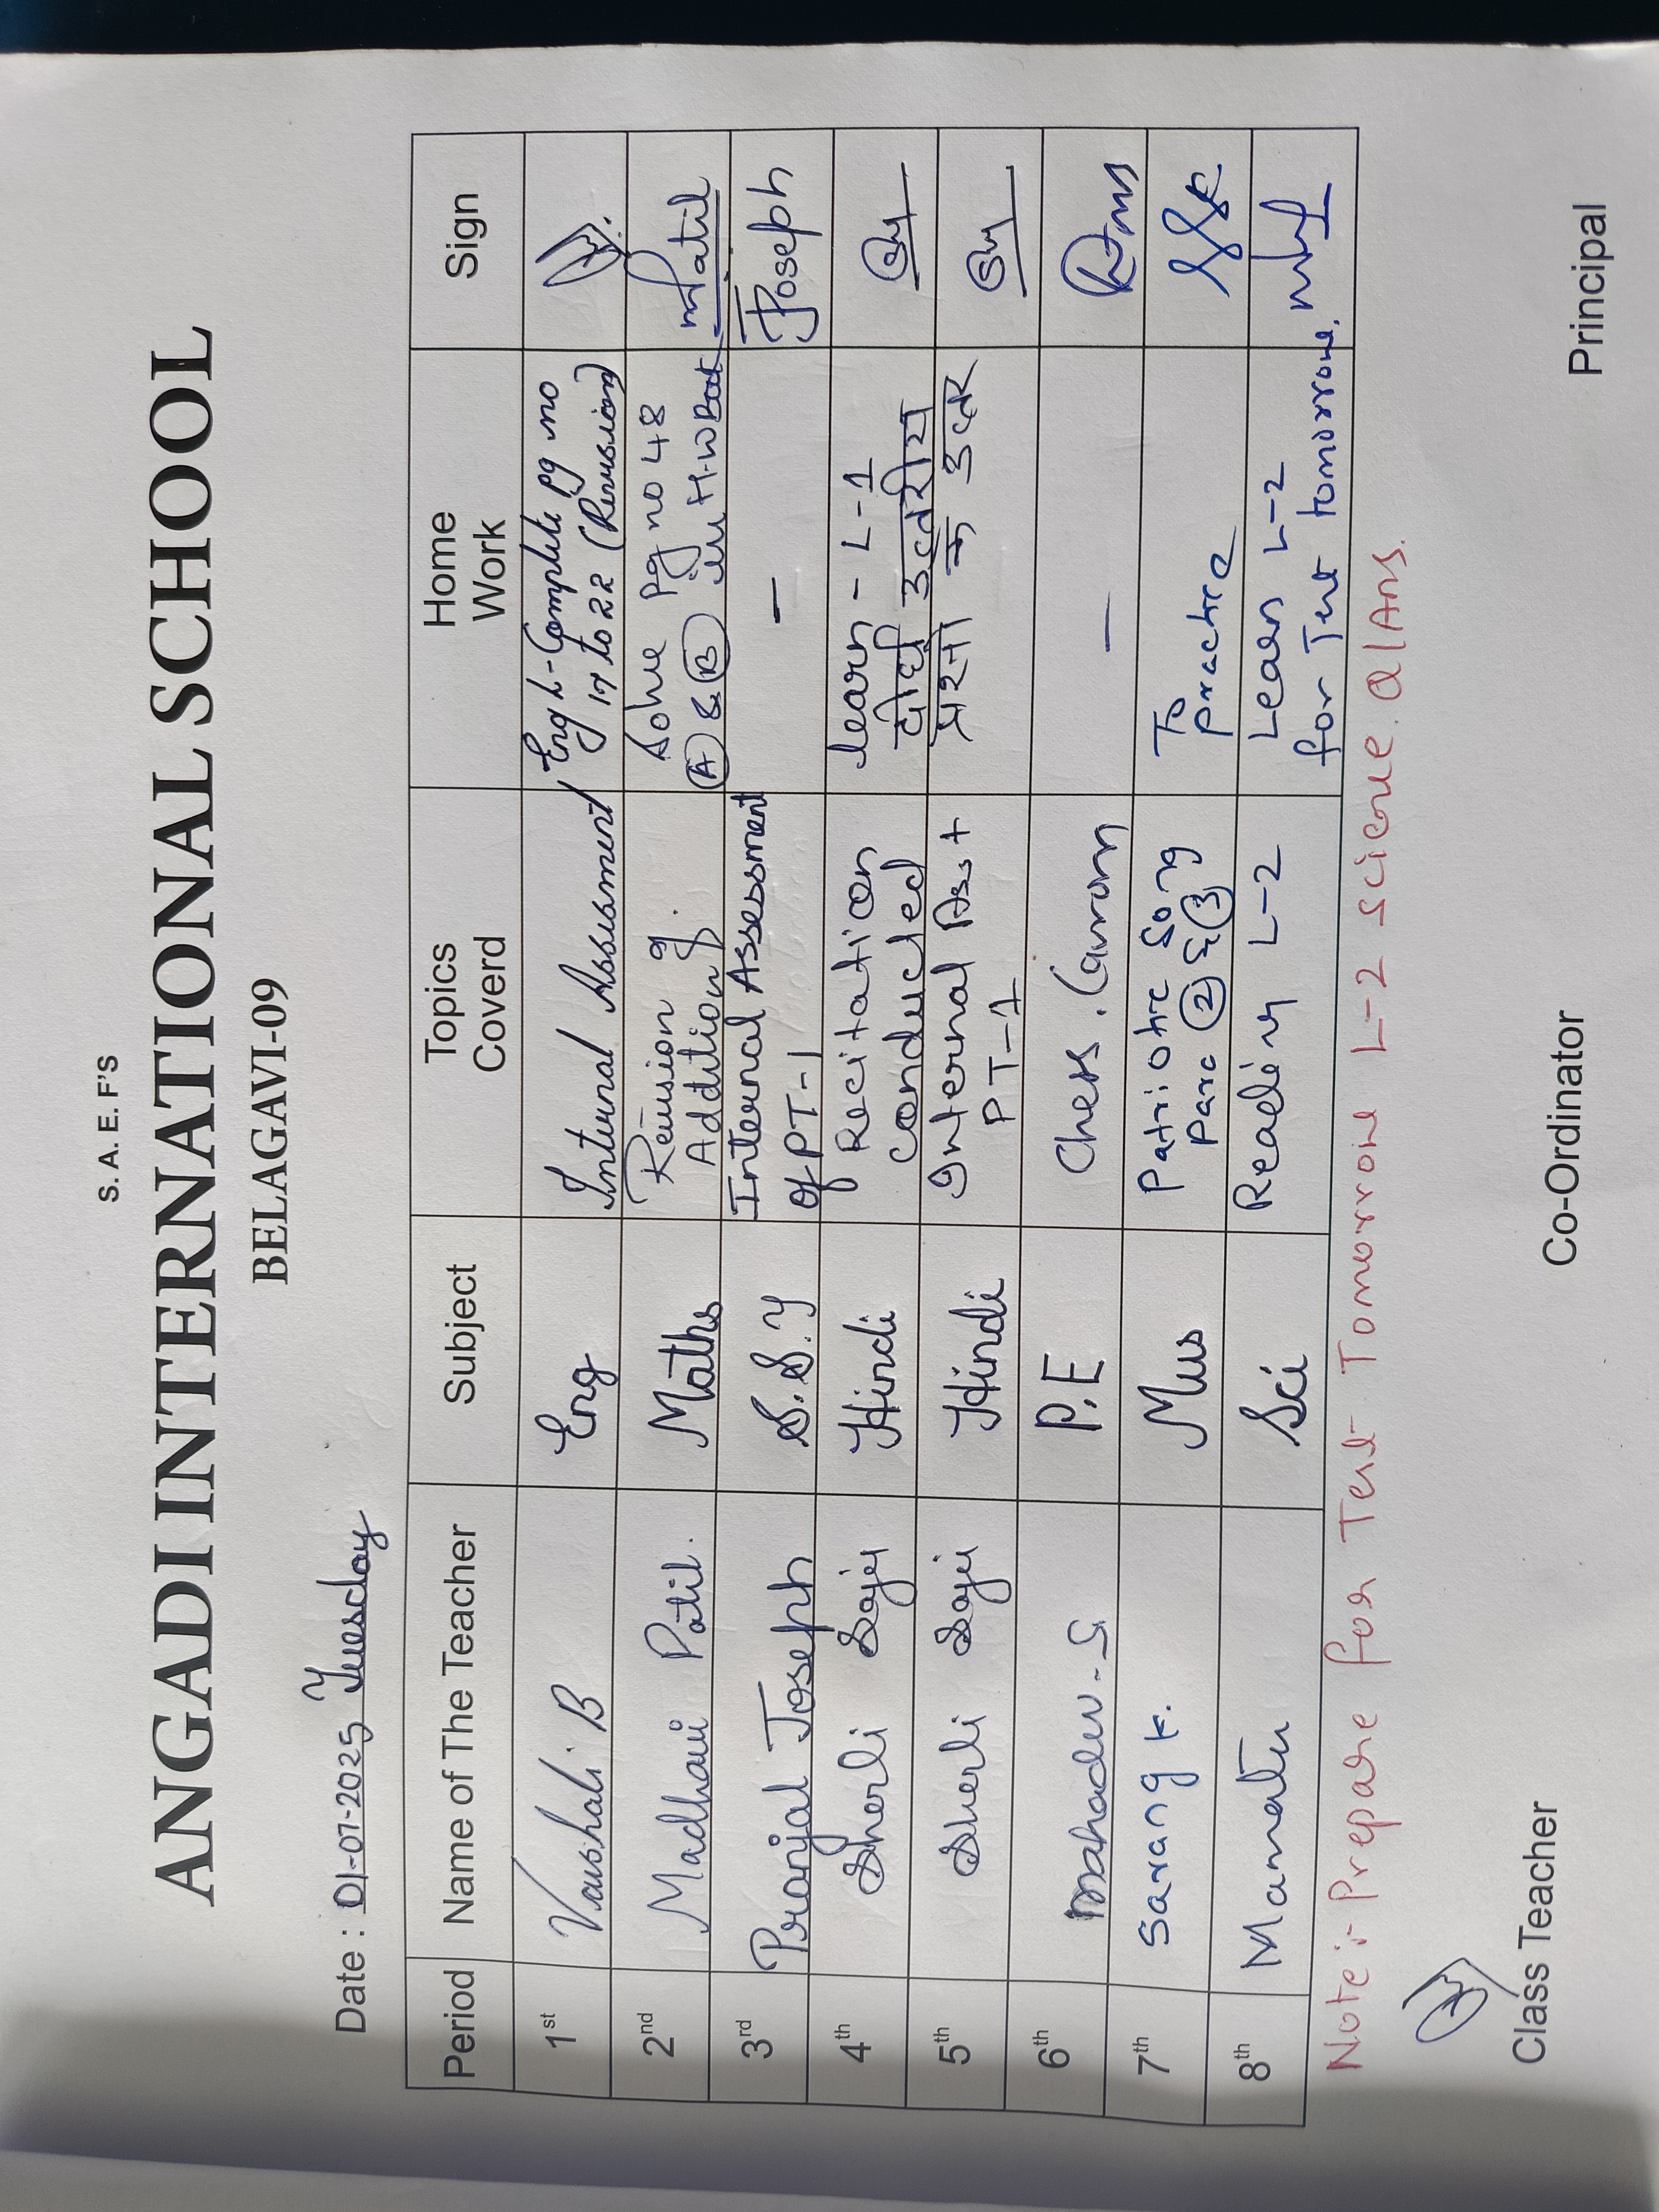 S. A. E. F'S
ANGADI INTERNATIONAL SCHOOL
BELAGAVI-09
Date : 01-07-2025 Tuesday
Period Name of The Teacher Subject Topics Coverd Home Work Sign
1st Vaishali. B Eng Internal Assessment Eng L-Complete pg no
17 to 22 (Revision)
2nd Madhavi Patil. Maths Revision of Solve Pg no 48 mPatil
Addition. A & B in H.W Book
3rd Pranjal Joseph S.S.T Internal Assessment — Joseph
of PT-1
4th Sherli Saju Hindi Recitation learn - L-1
conducted दीर्घ उत्तरीय
5th Sherli Saju Hindi Internal Asst प्रश्नो के उत्तर
PT-1
6th Mahadev-G P.E Chess. Carrom —
7th Sarang K. Mus Patriotic Song To
Para 2 & 3 practice
8th Mamata Sci Reading L-2 Learn L-2
for Test tomorrow.
Note :- Prepare for Test Tomorrow L-2 Science Q/Ans.
Class Teacher Co-Ordinator Principal